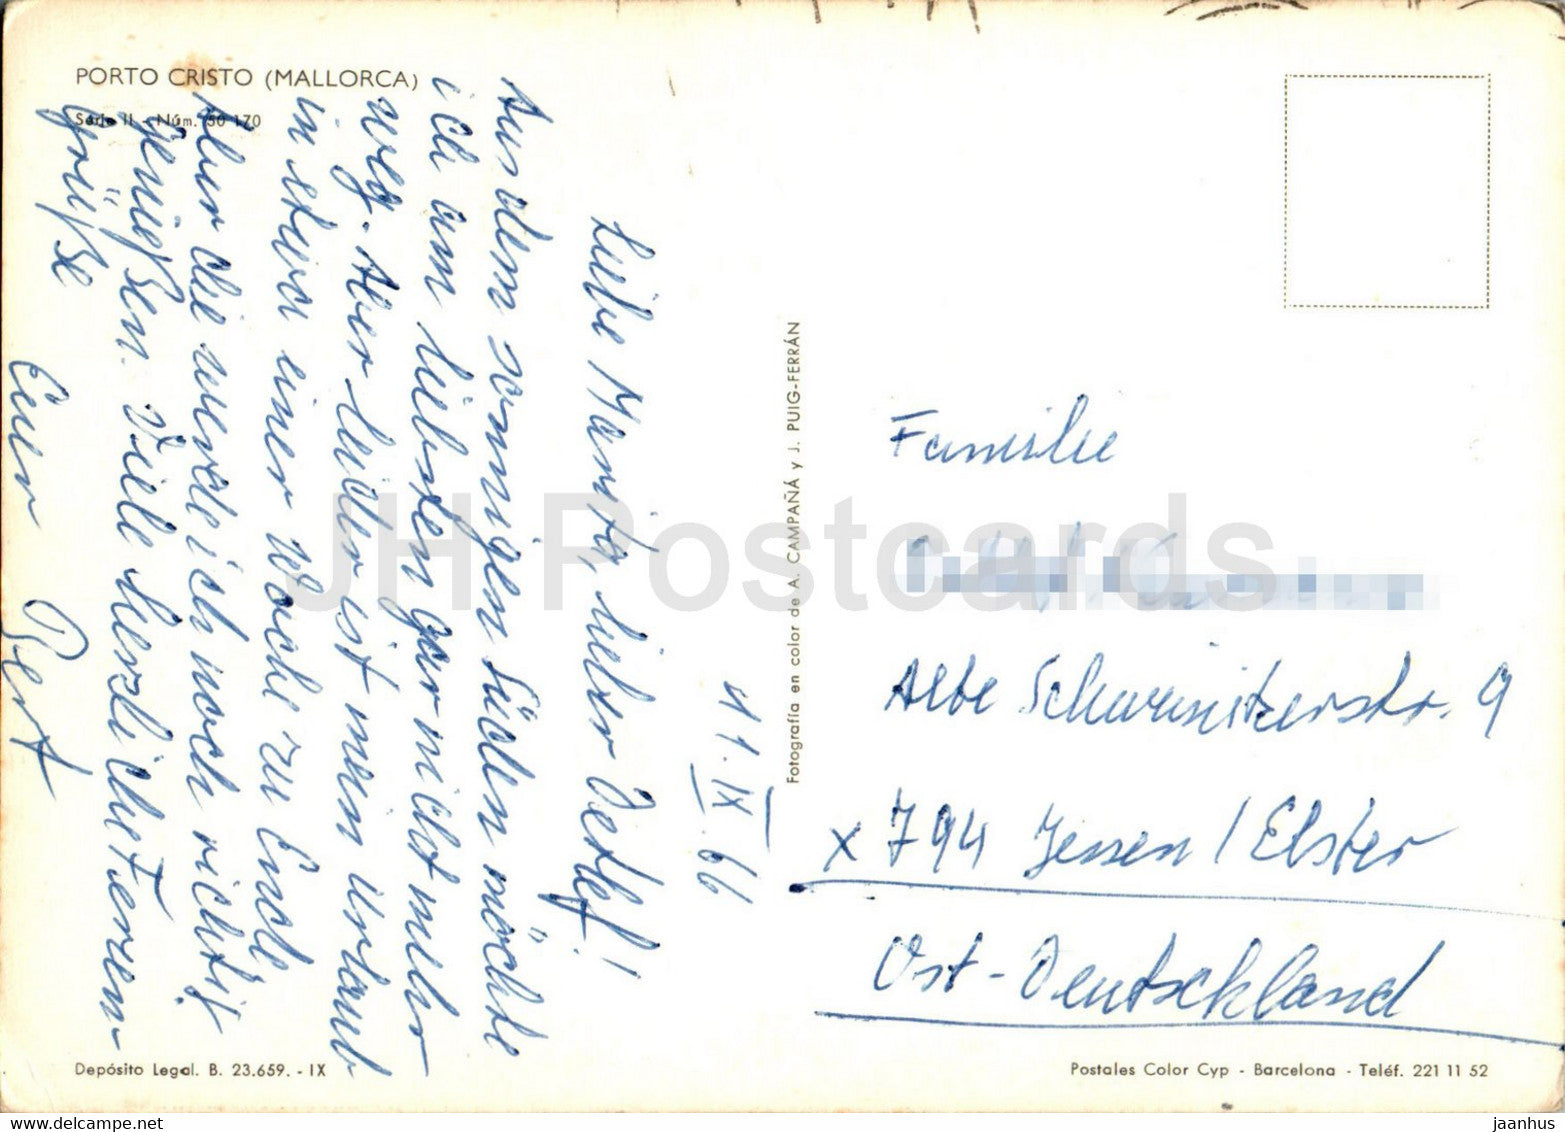 PORTO CRISTO (MALLORCA)
Serie II - Núm. 50 170
11.IX.66
Liebe Marita, lieber Detlef!
Aus dem sonnigen Süden möchte
ich am liebsten gar nicht mehr
weg. Aber leider ist mein Urlaub
in etwa einer Woche zu Ende
Aber die werde ich noch richtig
genießen. Viele herzliche Ferien
Grüße
Euer Gert
Fotografía en color de A. CAMPAÑÁ y J. PUIG-FERRÁN
Familie
Alte Schweinitzerstr. 9
x 794 Jessen / Elster
Ost-Deutschland
Depósito Legal. B. 23.659. - IX
Postales Color Cyp - Barcelona - Teléf. 221 11 52
JH Postcards
www.delcampe.net
jaanhus